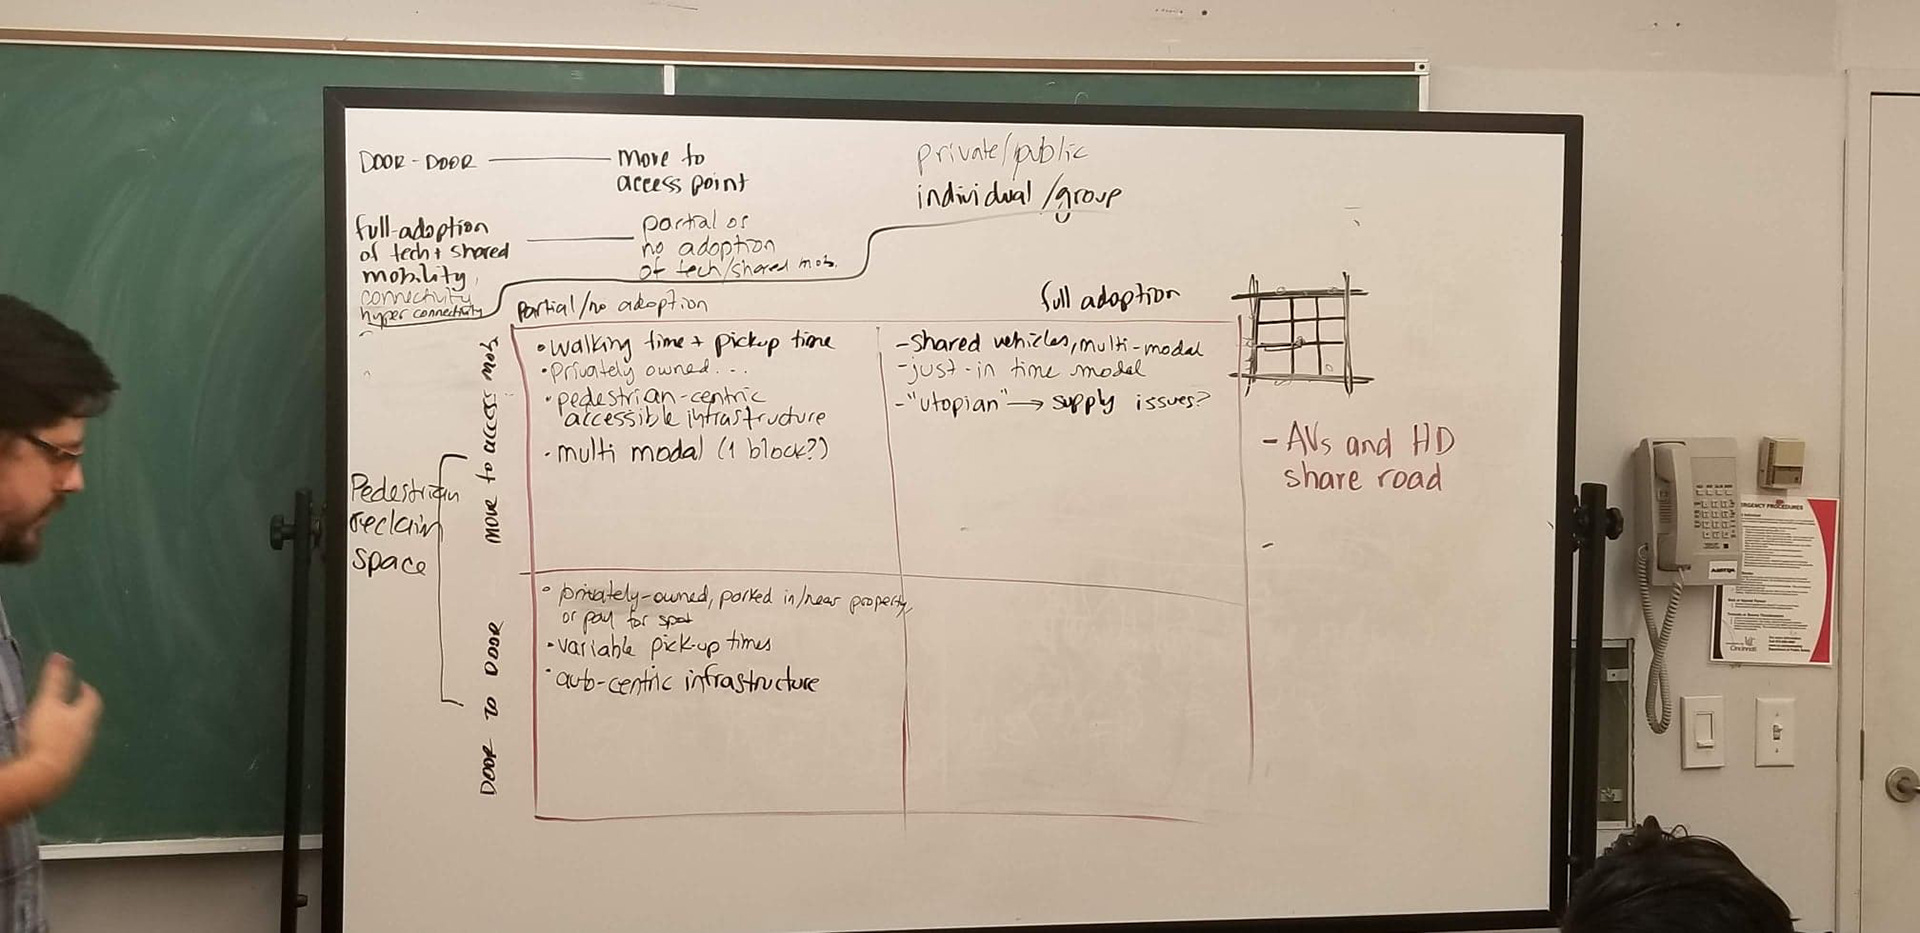 DOOR - DOOR
move to
access point
private/public
individual/group
full-adoption
of tech + shared
mobility,
connectivity
hyper connectivity
partial or
no adoption
of tech/shared mob.
Partial/no adoption
full adoption
move to access
• walking time + pickup time
• privately owned...
• pedestrian-centric
accessible infrastructure
• multi modal (1 block?)
- shared vehicles, multi-modal
- just-in time model
- "utopian" → supply issues?
- AVs and HD
share road
Pedestrian
reclaim
space
DOOR TO DOOR
• privately-owned, parked in/near property,
or pay for spot
• variable pick-up times
• auto-centric infrastructure
EMERGENCY PROCEDURES
Cincinnati